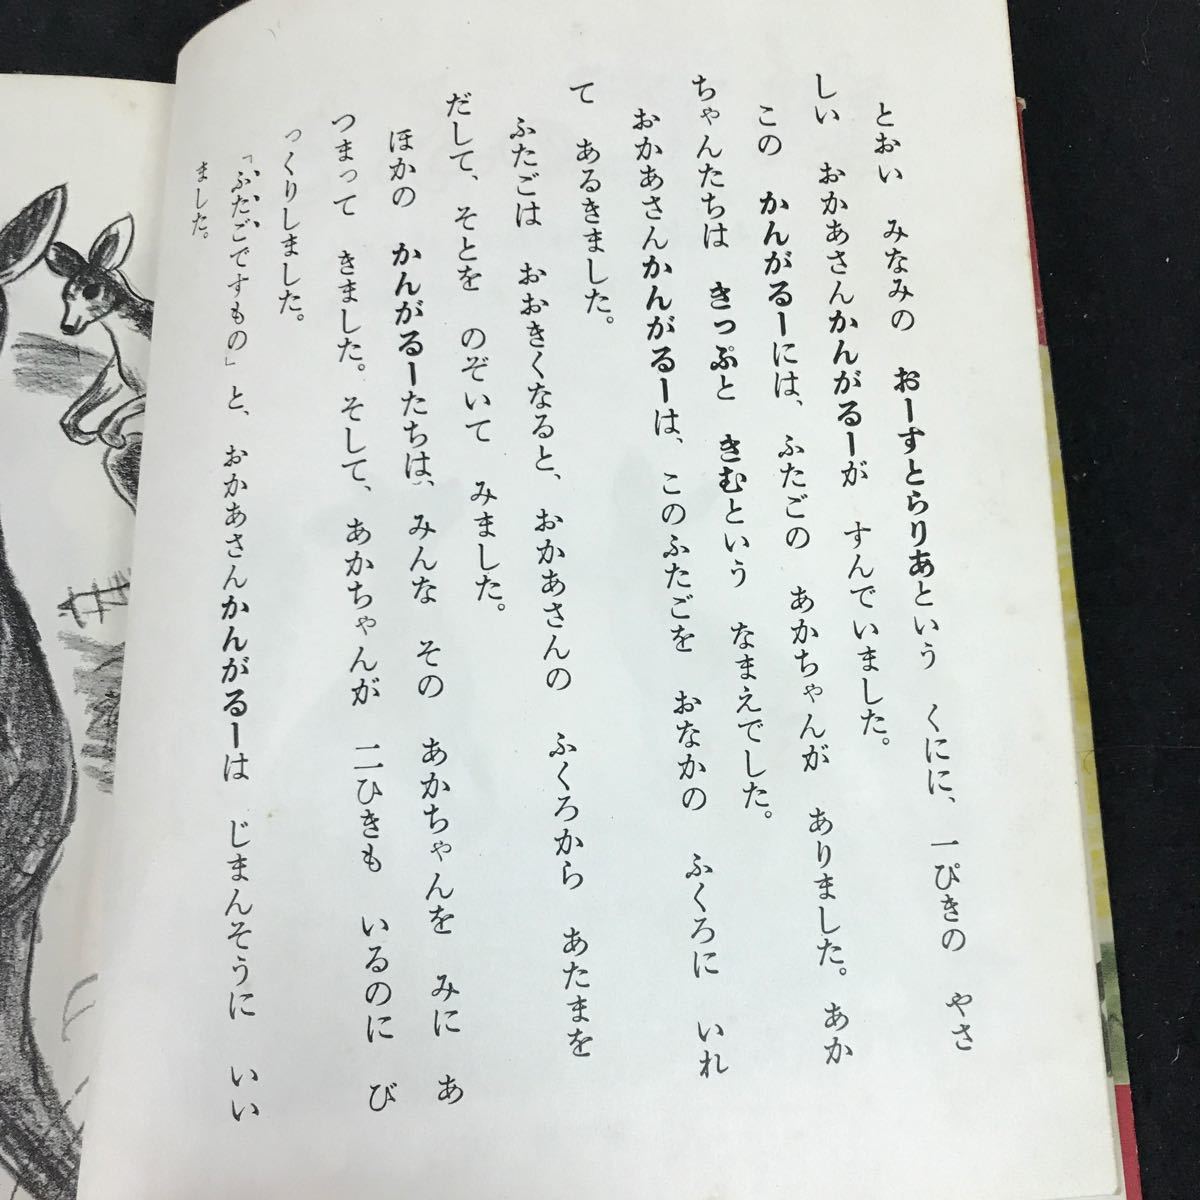 とおい みなみの おーすとらりあという くにに、一ぴきの やさ
しい おかあさんかんがるーが すんでいました。
この かんがるーには、ふたごの あかちゃんが ありました。あか
ちゃんたちは きっぷと きむという なまえでした。
おかあさんかんがるーは、このふたごを おなかの ふくろに いれ
て あるきました。
ふたごは おおきくなると、おかあさんの ふくろから あたまを
だして、そとを のぞいて みました。
ほかの かんがるーたちは、みんな その あかちゃんを みに あ
つまって きました。そして、あかちゃんが 二ひきも いるのに び
っくりしました。
「ふたごですもの」と、おかあさんかんがるーは じまんそうに いい
ました。